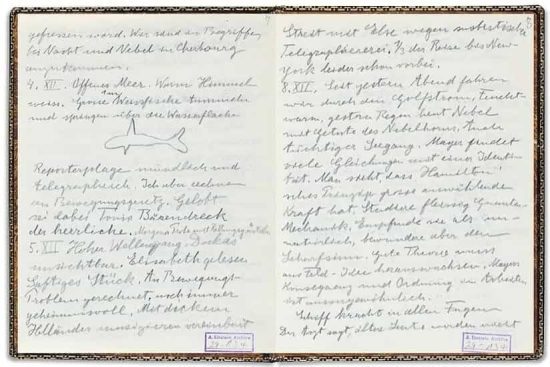 gefressen ward. War sind im Begriffe,
bei Nacht und Nebel in Cherbourg
anzukommen.
4. XII. Offenes Meer. Warm Himmel
weiss. Grosse Weissfische tummeln
und springen über die Wasserfläche
Reporterplage mündlich und
telegraphisch. Ich aber rechne
an Bewegungsgesetz. Gelobt
sei dabei
der herrliche.
5. XII Hoher Wellengang. Deckas
unsichtbar. Elisabeth gelesen
Saftiges Stück. An Bewegungs-
Problem gerechnet, noch immer
geheimnisvoll. Mit dickem
Holländer musizieren vereinbart
8
Streit mit Else wegen
Telegraphiererei. 1/2 der Reise bis New-
York leider schon vorbei.
8. XII. Seit gestern Abend fahren
wir durch den Golfstrom, Feucht-
warm, gestern Regen heut Nebel
mit Getute des Nebelhorns. Auch
tüchtiger Seegang. Mayer findet
viele Gleichungen mit einer Identi-
tät. Man sieht dass Hamilton'
sches Prinzip grosse
Kraft hat. Studiere fleissig Quanten-
Mechanik. Empfinde sie als un-
natürlich, bewundere aber den
Scharfsinn. Gute Theorie muss
aus Feld-Idee herauswachsen. Mayers
Konsequenz und Ordnung im Arbeiten
ist aussergewöhnlich.
Schiff kracht in allen Fugen
Der Arzt sagt, ältere Leute würden
A. Einstein Archive
29-134
A. Einstein Archive
29-134